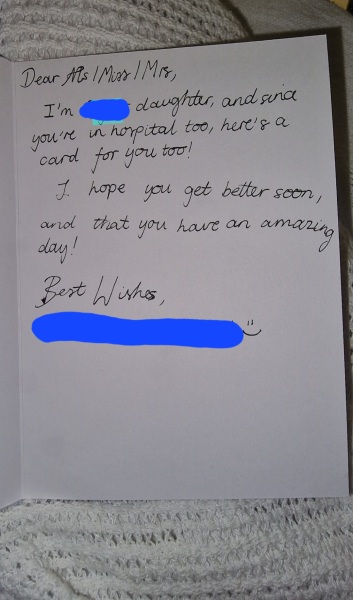 Dear Ms/Miss/Mrs,
I'm daughter, and since
you're in hospital too, here's a
card for you too!
I hope you get better soon,
and that you have an amazing
day!
Best Wishes,
:)